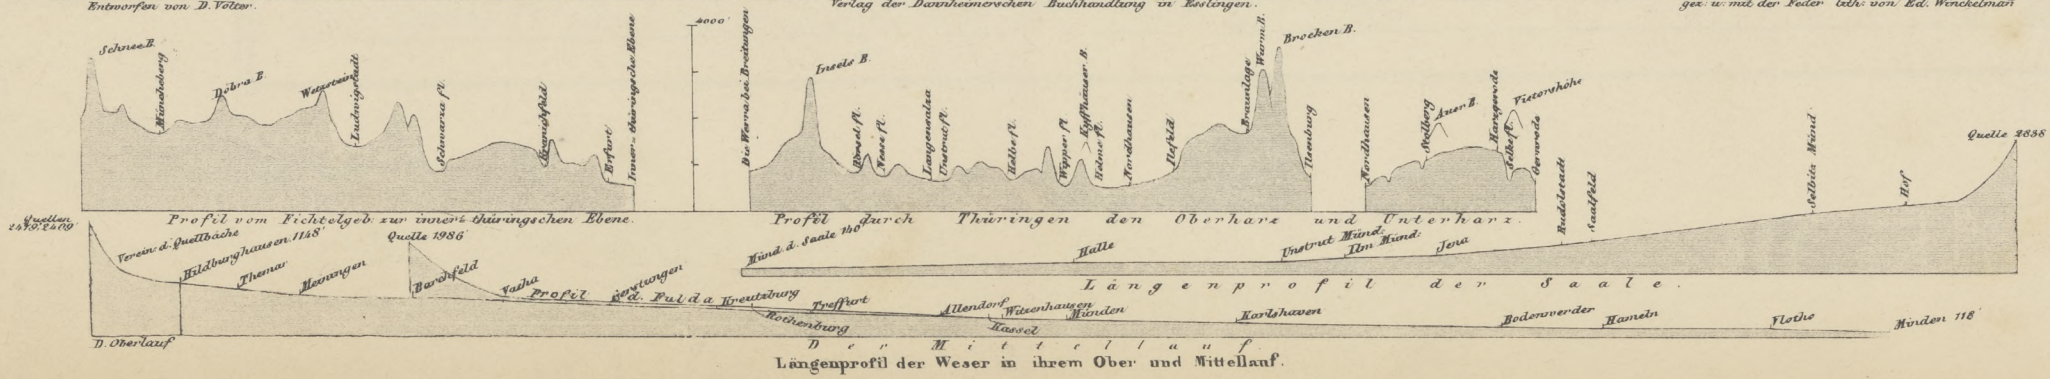 Entworfen von D. Völter.
Verlag der Dannheimerschen Buchhandlung in Esslingen.
gez: u: mit der Feder lith: von Ed. Winckelman
Schnee B.
Müncheberg
Döbra B.
Wetzstein
Ludwigstadt
Schwarza fl.
Kranichfeld
Erfurt
Inner-thüringsche Ebene
4000'
Die Werra bei Breitungen
Insels B.
Hörsel fl.
Nesse fl.
Langensalza
Unstrut fl.
Helbe fl.
Wipper fl.
Kyffhäuser B.
Helme fl.
Nordhausen
Ilefeld
Braunlage
Wurm B.
Brocken B.
Ilsenburg
Nordhausen
Stolberg
Auer B.
Harzgerode
Selke fl.
Victorshöhe
Gernrode
Profil vom Fichtelgeb: zur innern thüringschen Ebene.
Profil durch Thüringen den Oberharz und Unterharz.
Quellen
2479' 2409'
Verein: d: Quellbäche
Hildburghausen 1148'
Themar
Meiningen
Quelle 1986'
Barchfeld
Vacha
Profil d. Fulda
Gerstungen
Kreutzburg
Rothenburg
Treffurt
Allendorf
Witzenhausen
Münden
Kassel
Karlshaven
Bodenwerder
Hameln
Vlotho
Minden 118'
Münd d. Saale 140'
Halle
Unstrut Münd:
Ilm Münd:
Jena
Rudolstadt
Saalfeld
Selbitz Münd
Hof
Quelle 2838
Längenprofil der Saale.
D. Oberlauf
Der Mittellauf.
Längenprofil der Weser in ihrem Ober und Mittellauf.